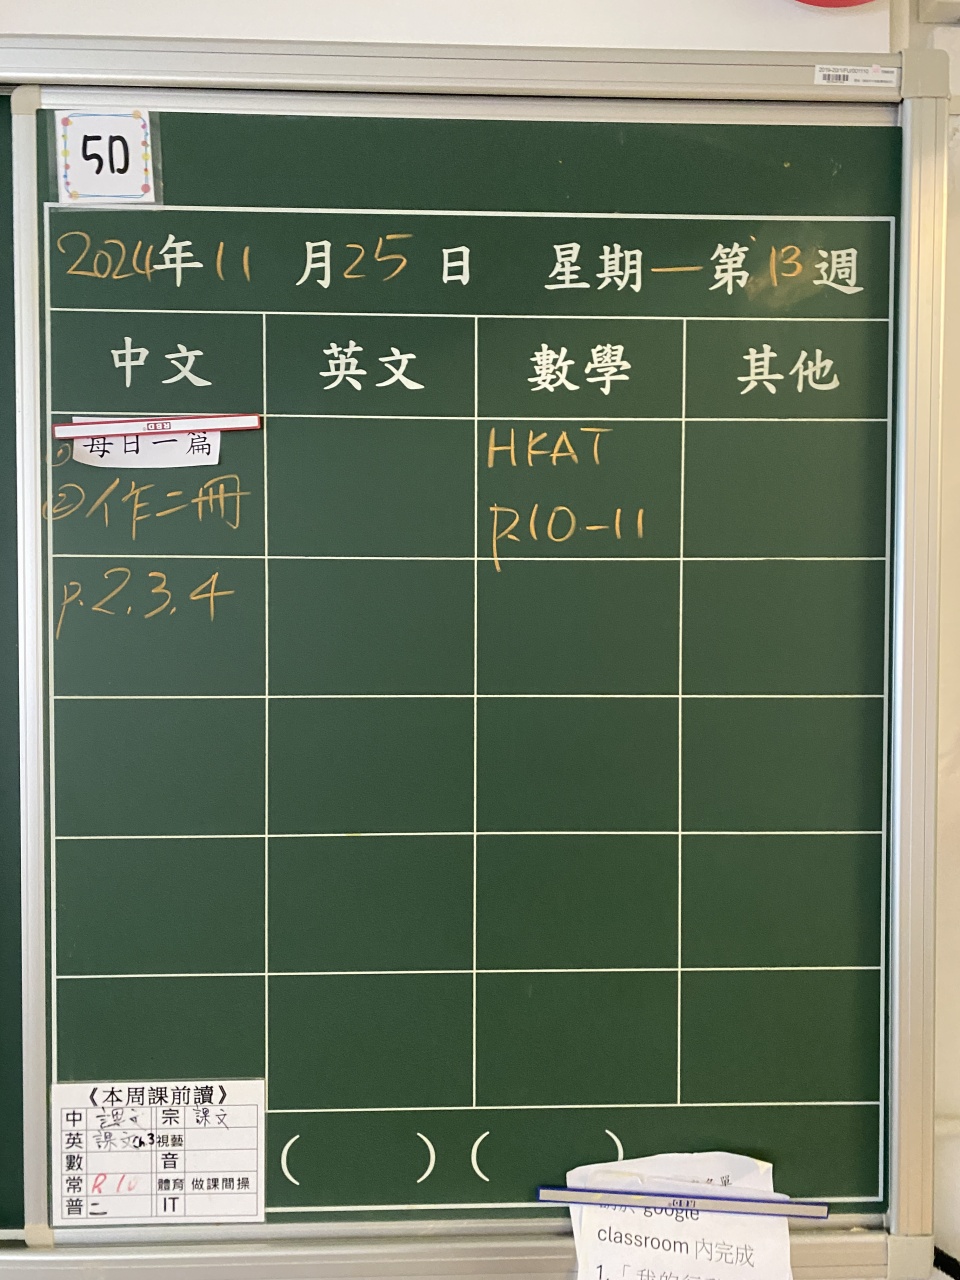 5D
2024年11月25日 星期一第13週
中文 英文 數學 其他
① 每日一篇
②作二冊
p.2.3.4
HKAT
p.10-11
《本周課前讀》
中 課文 宗 課文
英 課文ch3 視藝
數 音
常 體育 做課間操
普 二 IT
( ) ( )
google
classroom 內完成
1.「我的行